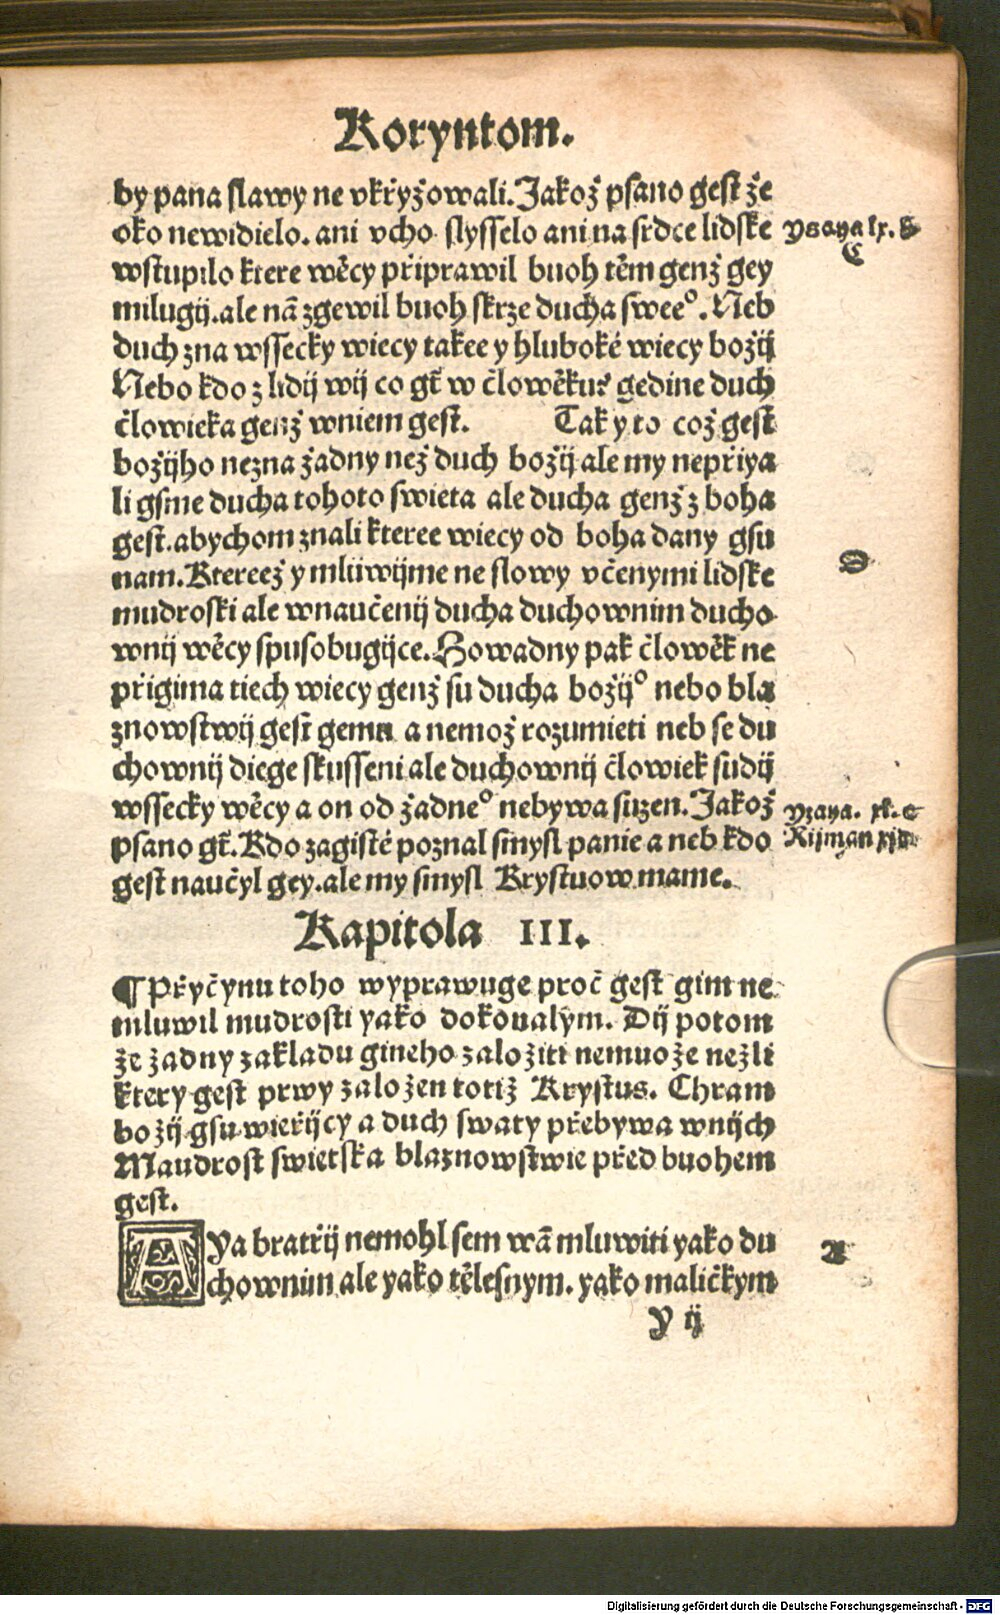 Koryntom.
by pana slawy ne vkřyžowali. Jakož psano gest že
oko newidielo. ani vcho slysselo ani na srdce lidske
Ysaya lx.
C
wstupilo ktere wěcy připrawil buoh těm genž gey
milugij. ale nā zgewil buoh skrze ducha sweeº. Neb
duch zna wssecky wiecy takee y hluboké wiecy božij
Nebo kdo z lidij wij co gt̃ w člowěku? gedine duch
člowieka genž wniem gest. Tak y to což gest
božijho nezna žadny než duch božij ale my nepřiya
li gsme ducha tohoto swieta ale ducha genž z boha
gest. abychom znali kteree wiecy od boha dany gsu
D
nam. Ktereež y mluwijme ne slowy včenymi lidske
mudroski ale wnaučenij ducha duchownim ducho
wnij wěcy spusobugijce. Howadny pak člowěk ne
přigima tiech wiecy genž su ducha božijº nebo bla
znowstwij gest gemu a nemož rozumieti neb se du
chownij diege skusseni ale duchownij člowiek sudij
wssecky wěcy a on od žadneº nebywa suzen. Jakož
Yzaya. xl. C
psano gt̃. Kdo zagisté poznal smysl panie a neb kdo
Rijman
gest naučyl gey. ale my smysl Krystuow mame.
Kapitola III.
¶ Přyčynu toho wyprawuge proč gest gim ne
mluwil mudrosti yako dokonalym. Dij potom
že žadny zakladu gineho založiti nemuože nežli
ktery gest prwy založen totiž Krystus. Chram
božij gsu wieřijcy a duch swaty přebywa wnijch
Maudrost swietska blaznowstwie před buohem
gest.
A Ya bratřij nemohl sem wā mluwiti yako du
A
chownim ale yako tělesnym. yako maličkym
Y ij
Digitalisierung gefördert durch die Deutsche Forschungsgemeinschaft - DFG